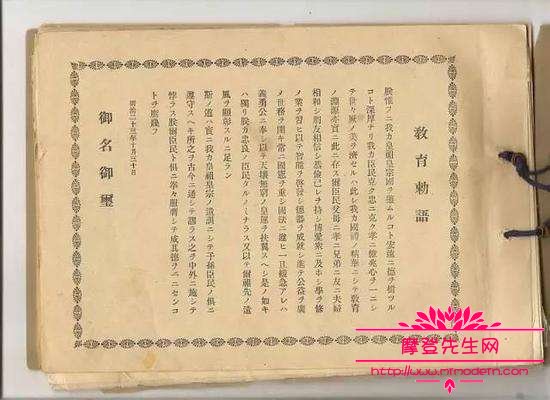 教育勅語
朕惟フニ我カ皇祖皇宗國ヲ肇ムルコト宏遠ニ德ヲ樹ツル
コト深厚ナリ我カ臣民克ク忠ニ克ク孝ニ億兆心ヲ一ニシ
テ世々厥ノ美ヲ濟セルハ此レ我カ國體ノ精華ニシテ教育
ノ淵源亦實ニ此ニ存ス爾臣民父母ニ孝ニ兄弟ニ友ニ夫婦
相和シ朋友相信シ恭儉己レヲ持シ博愛衆ニ及ホシ學ヲ修
メ業ヲ習ヒ以テ智能ヲ啓發シ德器ヲ成就シ進テ公益ヲ廣
メ世務ヲ開キ常ニ國憲ヲ重シ國法ニ遵ヒ一旦緩急アレハ
義勇公ニ奉シ以テ天壤無窮ノ皇運ヲ扶翼スヘシ是ノ如キ
ハ獨リ朕カ忠良ノ臣民タルノミナラス又以テ爾祖先ノ遺
風ヲ顯彰スルニ足ラン
斯ノ道ハ實ニ我カ皇祖皇宗ノ遺訓ニシテ子孫臣民ノ倶ニ
遵守スヘキ所之ヲ古今ニ通シテ謬ラス之ヲ中外ニ施シテ
悖ラス朕爾臣民ト倶ニ拳々服膺シテ咸其德ヲ一ニセンコ
トヲ庶幾フ
明治二十三年十月三十日
御名御璽
摩登先生网
http://www.mrmodern.com